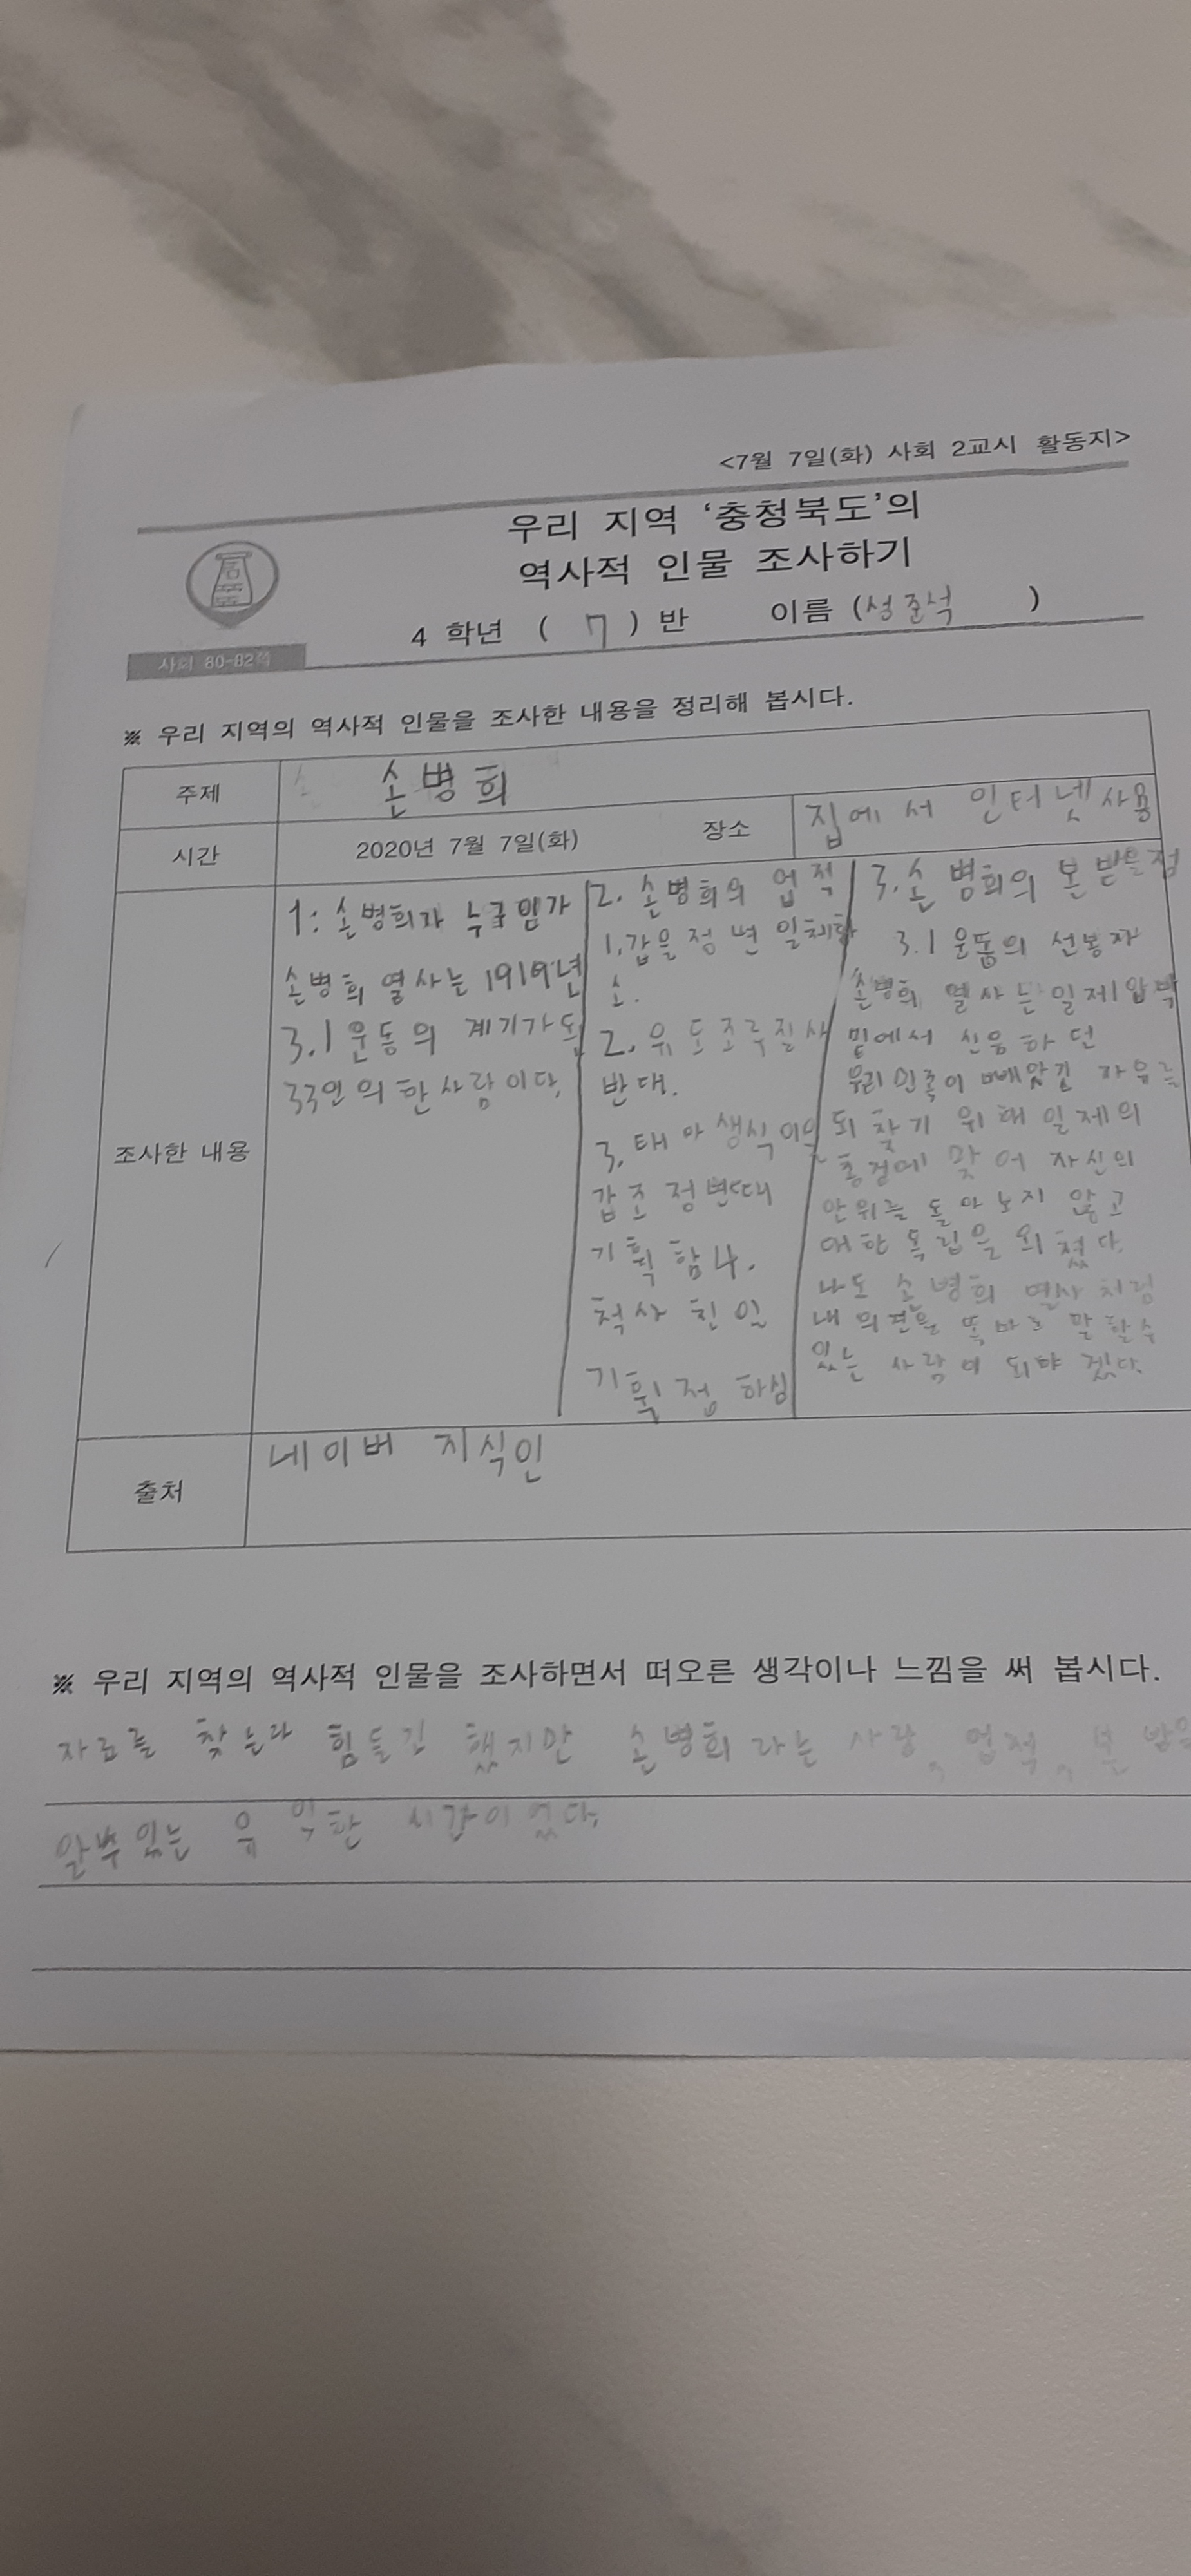 <7월 7일(화) 사회 2교시 활동지>
우리 지역 '충청북도'의
역사적 인물 조사하기
4 학년 ( 7 ) 반 이름 (성준석 )
사회 80-82쪽
※ 우리 지역의 역사적 인물을 조사한 내용을 정리해 봅시다.
주제 손병희
시간 2020년 7월 7일(화) 장소 집에서 인터넷사용
조사한 내용
1: 손병희자 누구임가
손병희 열사는 1919년
3.1운동의 계기가 된
33인의 한사람이다.
2. 손병희의 업적
1.갑을정변 일체화
소.
2. 위도조루질사
반대.
3. 태아생식이일
갑조정변때
기획함4.
척사 친일
기획점 하심
3.손병희의 본받을점
3.1운동의 선봉자
손병희 열사는 일제압박
밑에서 신음하던
우리민족이 빼앗긴 자유를
되찾기 위해 일제의
총검에 맞어 자신의
안위를 돌아보지 않고
대한독립을 외쳤다.
나도 손병희 열사처럼
내 의견을 똑바로 말할수
있는 사람이 되야겠다.
출처 네이버 지식인
※ 우리 지역의 역사적 인물을 조사하면서 떠오른 생각이나 느낌을 써 봅시다.
자료를 찾는라 힘들긴 했지만 손병희라는 사람, 업적, 본받을
알수있는 유익한 시간이었다.